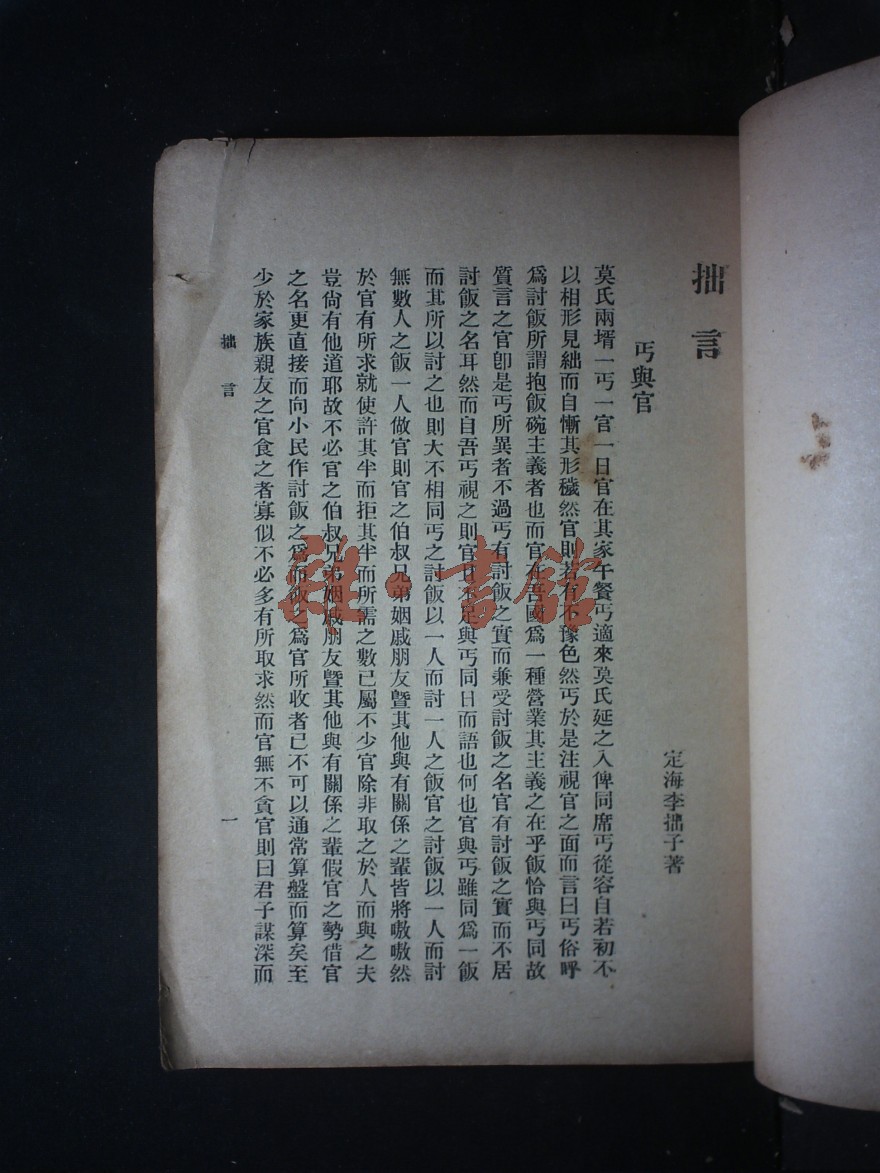 拙言
定海李拙子著
丐與官
莫氏兩壻一丐一官一日官在其家午餐丐適來莫氏延之入俾同席丐從容自若初不
以相形見絀而自慚其形穢然官則若有不豫色然丐於是注視官之面而言曰丐俗呼
爲討飯所謂抱飯碗主義者也而官在吾國爲一種營業其主義之在乎飯恰與丐同故
質言之官卽是丐所異者不過丐有討飯之實而兼受討飯之名官有討飯之實而不居
討飯之名耳然而自吾丐視之則官且不足與丐同日而語也何也官與丐雖同爲一飯
而其所以討之也則大不相同丐之討飯以一人而討一人之飯官之討飯以一人而討
無數人之飯一人做官則官之伯叔兄弟姻戚朋友曁其他與有關係之輩皆將嗷嗷然
於官有所求就使許其半而拒其半而所需之數已屬不少官除非取之於人而與之夫
豈尙有他道耶故不必官之伯叔兄弟姻戚朋友曁其他與有關係之輩假官之勢借官
之名更直接而向小民作討飯之爲而飯之爲官所收者已不可以通常算盤而算矣至
少於家族親友之官食之者寡似不必多有所取求然而官無不貪官則曰君子謀深而
拙言
一
雜·書館